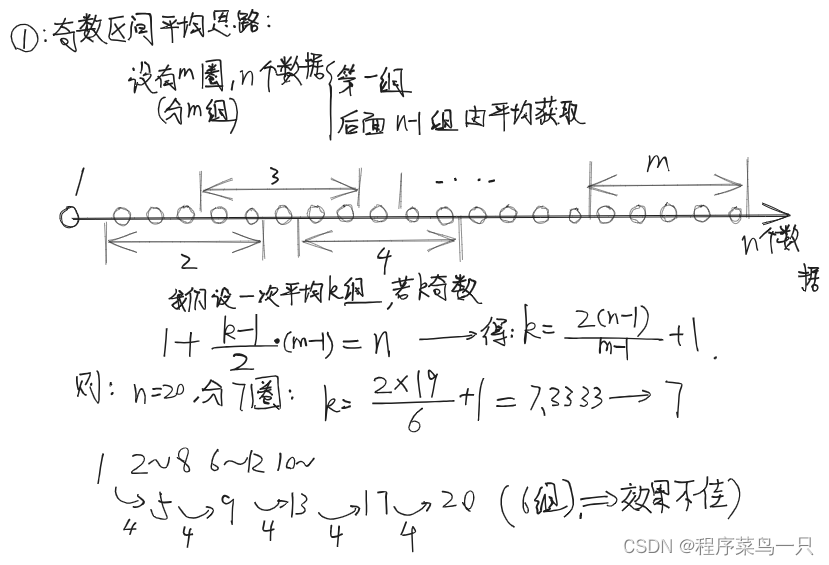 ①:奇数区间平均思路:
设有m圈,n个数据 { 第一组
(分m组) 后面n-1组由平均获取
1 3 -··-- m
2 4 n个数据
我们设一次平均k组,若k奇数
1+\frac{k-1}{2}·(m-1)=n → 得:k=\frac{2(n-1)}{m-1}+1.
则: n=20,分7圈: k=\frac{2×19}{6}+1=7.3333→7
1 2~8 6~12 10~
5 9 13 17 20 (6组).⇒效果不佳)
4 4 4 4 4
CSDN @程序菜鸟一只